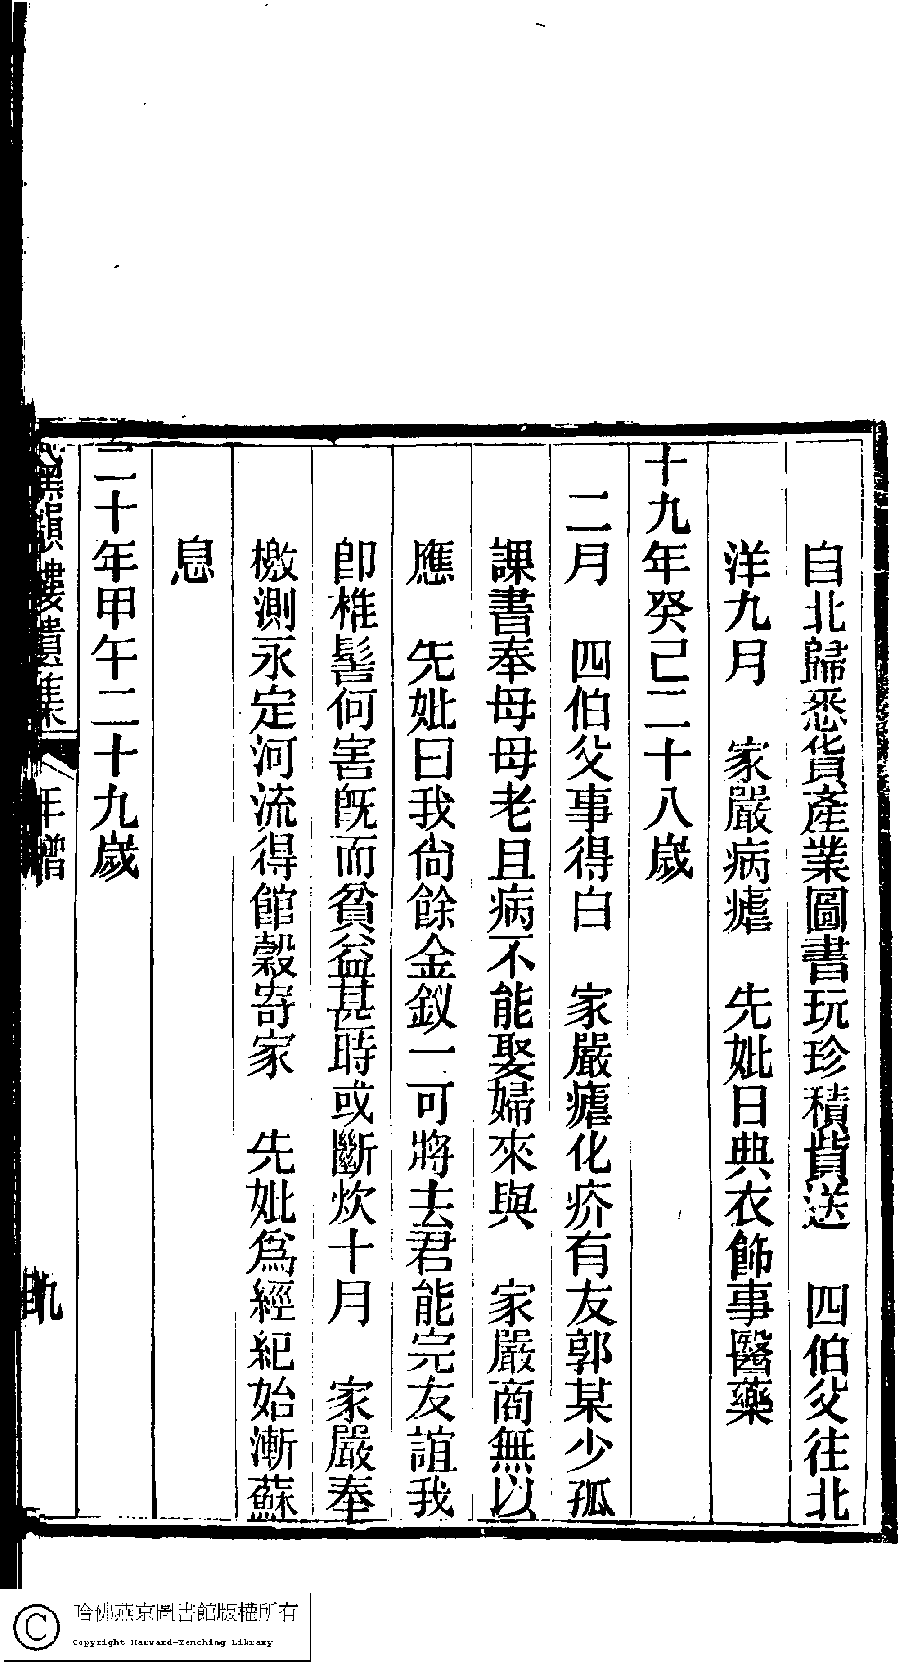 自北歸悉貨產業圖書玩珍積貲送　四伯父往北
洋九月　家嚴病瘧　先妣日典衣飾事醫藥
十九年癸巳二十八歲
二月　四伯父事得白　家嚴瘧化疥有友郭某少孤
課書奉母母老且病不能娶婦來與　家嚴商無以
應　先妣曰我尙餘金釵一可將去君能完友誼我
卽椎髻何害旣而貧益甚時或斷炊十月　家嚴奉
檄測永定河流得館穀寄家　先妣爲經紀始漸蘇
息
二十年甲午二十九歲
韻樓遺集　年譜　九
哈佛燕京圖書館版權所有
Copyright Harvard-Yenching Library